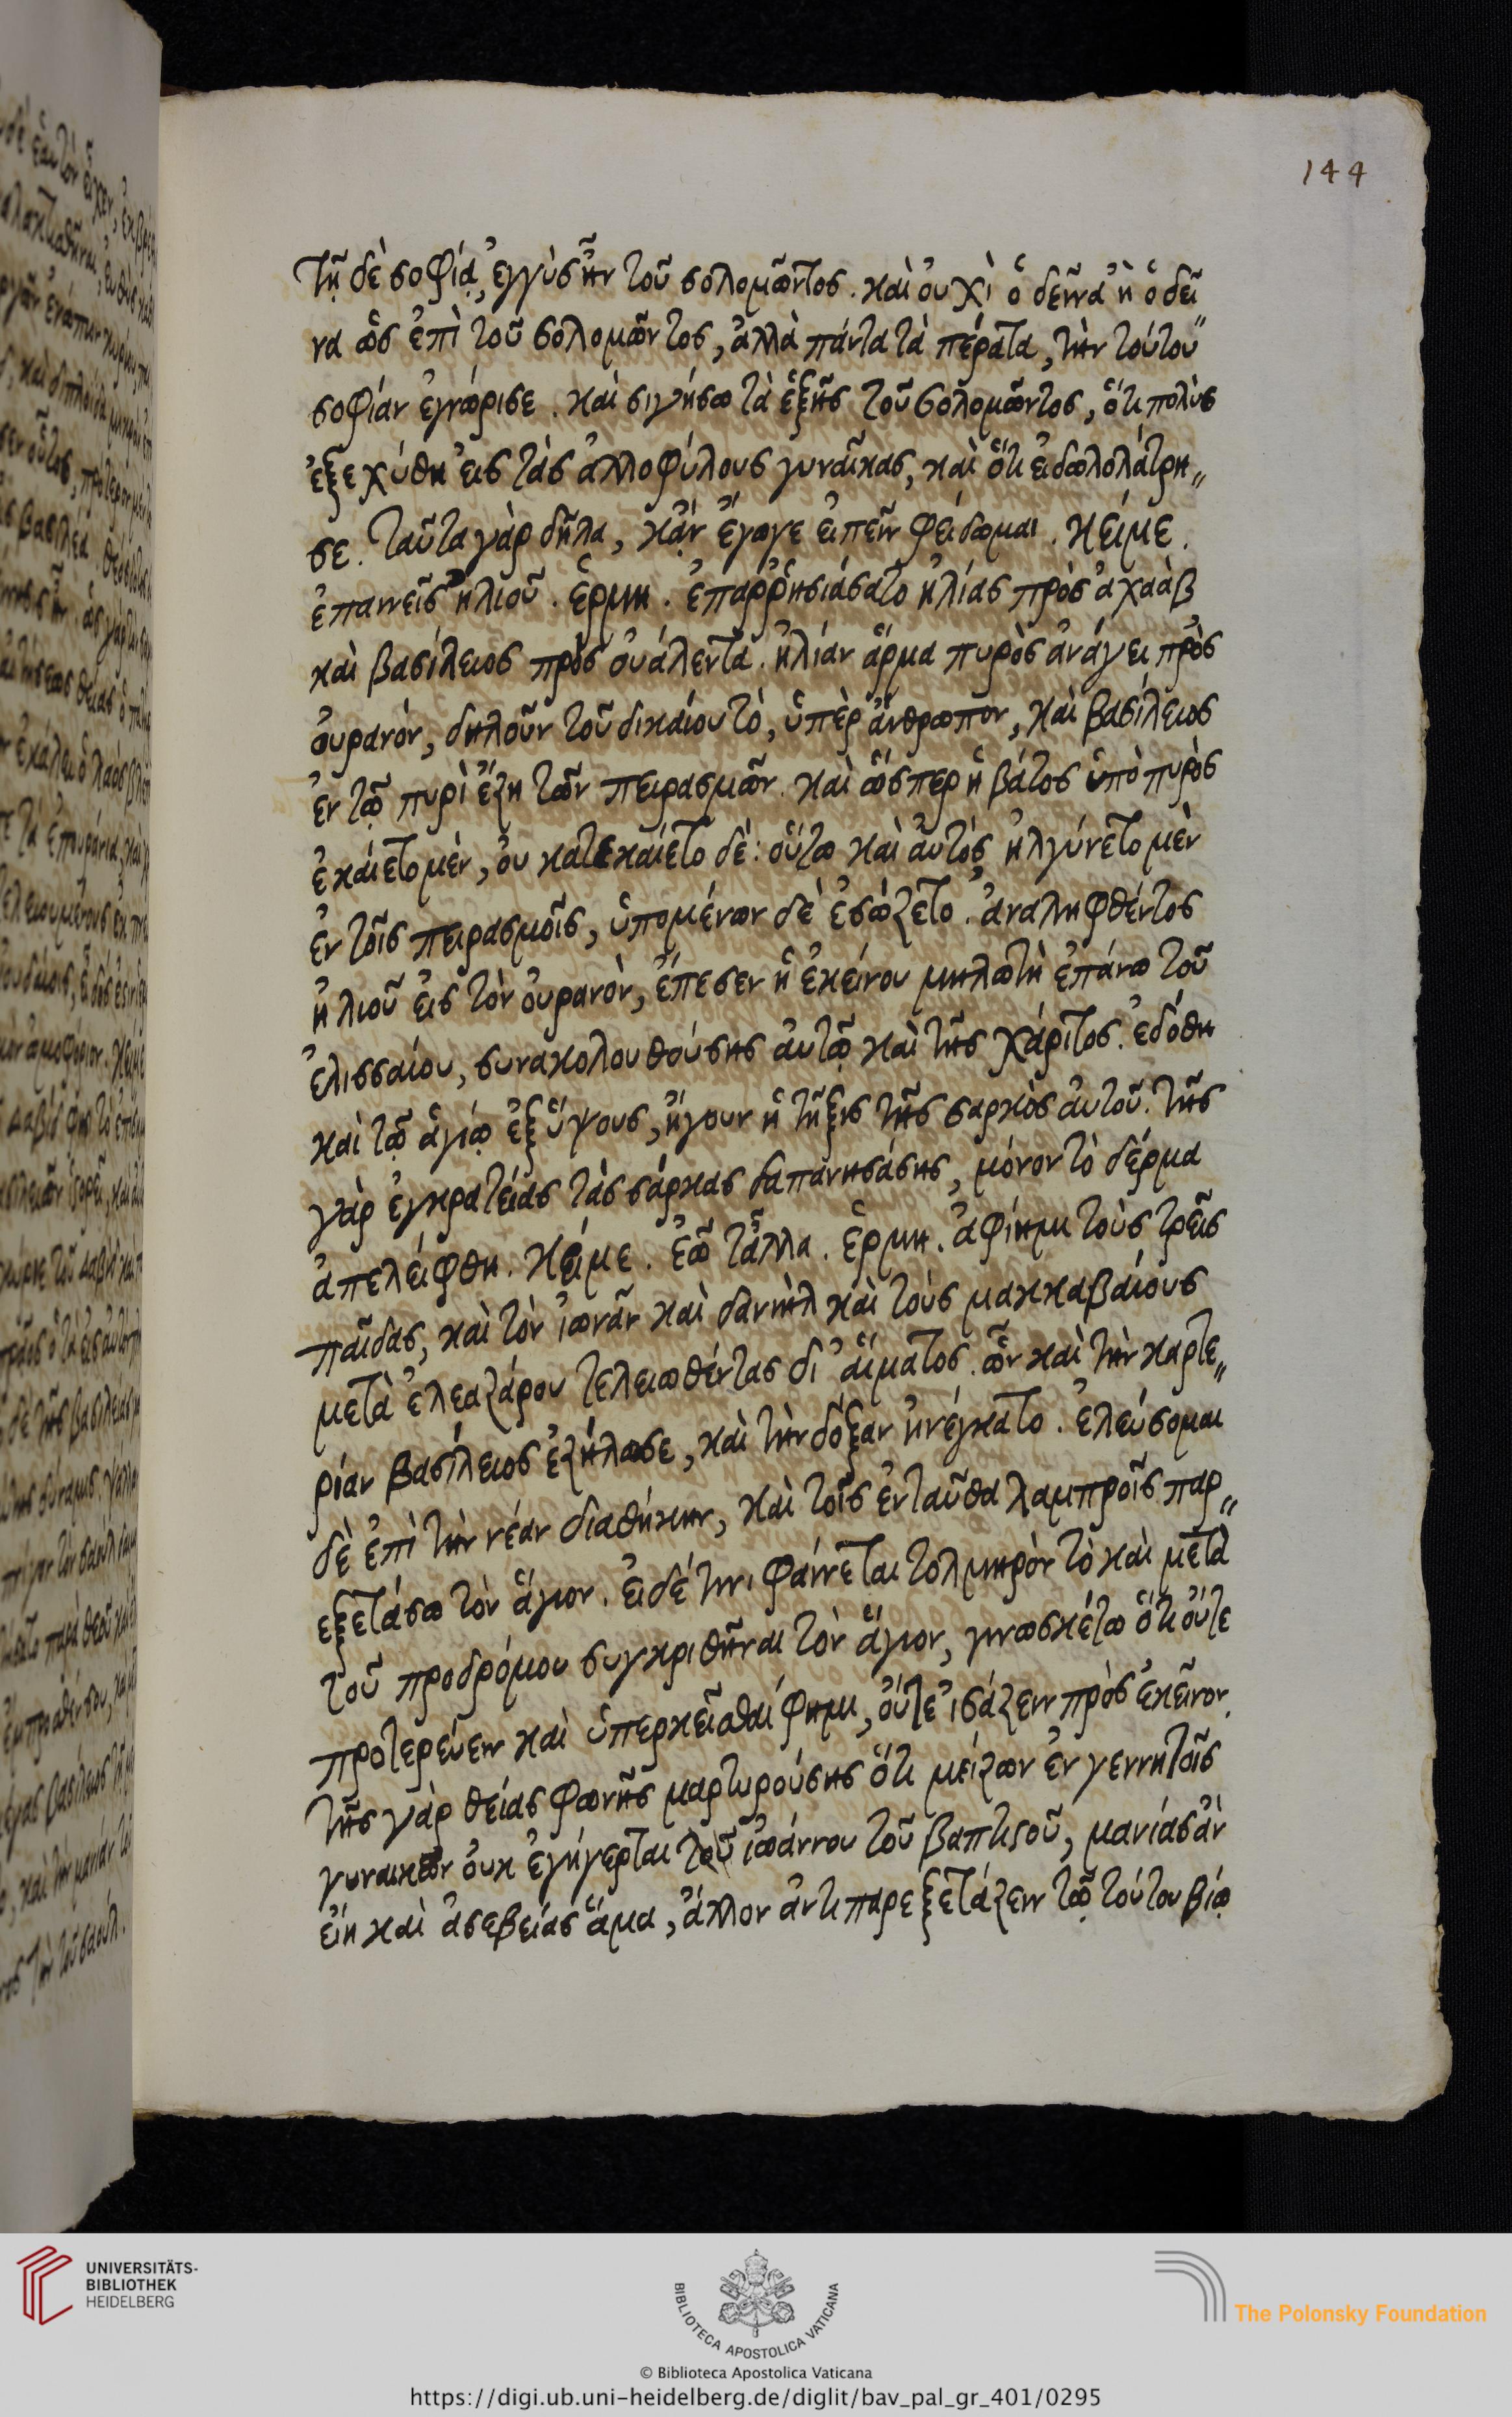 144
τῇ δὲ σοφίᾳ, ἐγγὺς ἦν τοῦ σολομῶντος. καὶ οὐχὶ ὁ δεῖνα ἢ ὁ δεῖ
να ὡς ἐπὶ τοῦ σολομῶντος, ἀλλὰ πάντα τὰ πέρατα, τὴν τούτου
σοφίαν ἐγνώρισε. καὶ σιγήσω τὰ ἑξῆς τοῦ σολομῶντος, ὅτι πολὺς
ἐξεχύθη εἰς τὰς ἀλλοφύλους γυναῖκας, καὶ ὅτι εἰδωλολάτρη„
σε. ταῦτα γὰρ δῆλα, κἂν ἔγωγε εἰπεῖν φείδωμαι. κείμε.
ἐπαινεῖς ἠλιοῦ. ἑρμη. ἐπαρρησιάσατο ἠλίας πρὸς ἀχαὰβ
καὶ βασίλειος πρὸς οὐάλεντα. ἠλίαν ἅρμα πυρὸς ἀνάγει πρὸς
οὐρανόν, δηλοῦν τοῦ δικαίου τὸ, ὑπὲρ ἄνθρωπον, καὶ βασίλειος
ἐν τῷ πυρὶ ἔζη τῶν πειρασμῶν. καὶ ὥσπερ ἡ βάτος ὑπὸ πυρὸς
ἐκαίετο μὲν, οὐ κατεκαίετο δέ: οὕτω καὶ αὐτὸς ἠλγύνετο μὲν
ἐν τοῖς πειρασμοῖς, ὑπομένων δὲ ἐσώζετο. ἀναληφθέντος
ἠλιοῦ εἰς τὸν οὐρανὸν, ἔπεσεν ἡ ἐκείνου μηλωτὴ ἐπάνω τοῦ
ἐλισσαίου, συνακολουθούσης αὐτῷ καὶ τῆς χάριτος. ἐδόθη
καὶ τῷ ἁγίῳ ἐξ ὕψους, ἤγουν ἡ τῆξις τῆς σαρκὸς αὐτοῦ. τῆς
γὰρ ἐγκρατείας τὰς σάρκας δαπανησάσης, μόνον τὸ δέρμα
ἀπελείφθη. κείμε. ἐῶ τἄλλα. ἑρμη. ἀφίημι τοὺς τρεῖς
παῖδας, καὶ τὸν ἰωνᾶν καὶ δανιὴλ καὶ τοὺς μακκαβαίους
μετὰ ἐλεαζάρου τελειωθέντας δι' αἵματος. ὧν καὶ τὴν καρτε„
ρίαν βασίλειος ἐζήλωσε, καὶ τὴν δόξαν ἠνέγκατο. ἐλεύσομαι
δὲ ἐπὶ τὴν νέαν διαθήκην, καὶ τοῖς ἐνταῦθα λαμπροῖς παρ„
εξετάσω τὸν ἅγιον. εἰ δέ τινι φαίνεται τολμηρὸν τὸ καὶ μετὰ
τοῦ προδρόμου συγκριθῆναι τὸν ἅγιον, γινωσκέτω ὅτι οὔτε
προτερεύειν καὶ ὑπερκεῖσθαί φημι, οὔτε ἰσάζειν πρὸς ἐκεῖνον.
τῆς γὰρ θείας φωνῆς μαρτυρούσης ὅτι μείζων ἐν γεννητοῖς
γυναικῶν οὐκ ἐγήγερται τοῦ ἰωάννου τοῦ βαπτιστοῦ, μανίας ἂν
εἴη καὶ ἀσεβείας ἅμα, ἄλλον ἀντιπαρεξετάζειν τῷ τούτου βίῳ
UNIVERSITÄTS-
BIBLIOTHEK
HEIDELBERG
BIBLIOTECA APOSTOLICA VATICANA
The Polonsky Foundation
© Biblioteca Apostolica Vaticana
https://digi.ub.uni-heidelberg.de/diglit/bav_pal_gr_401/0295